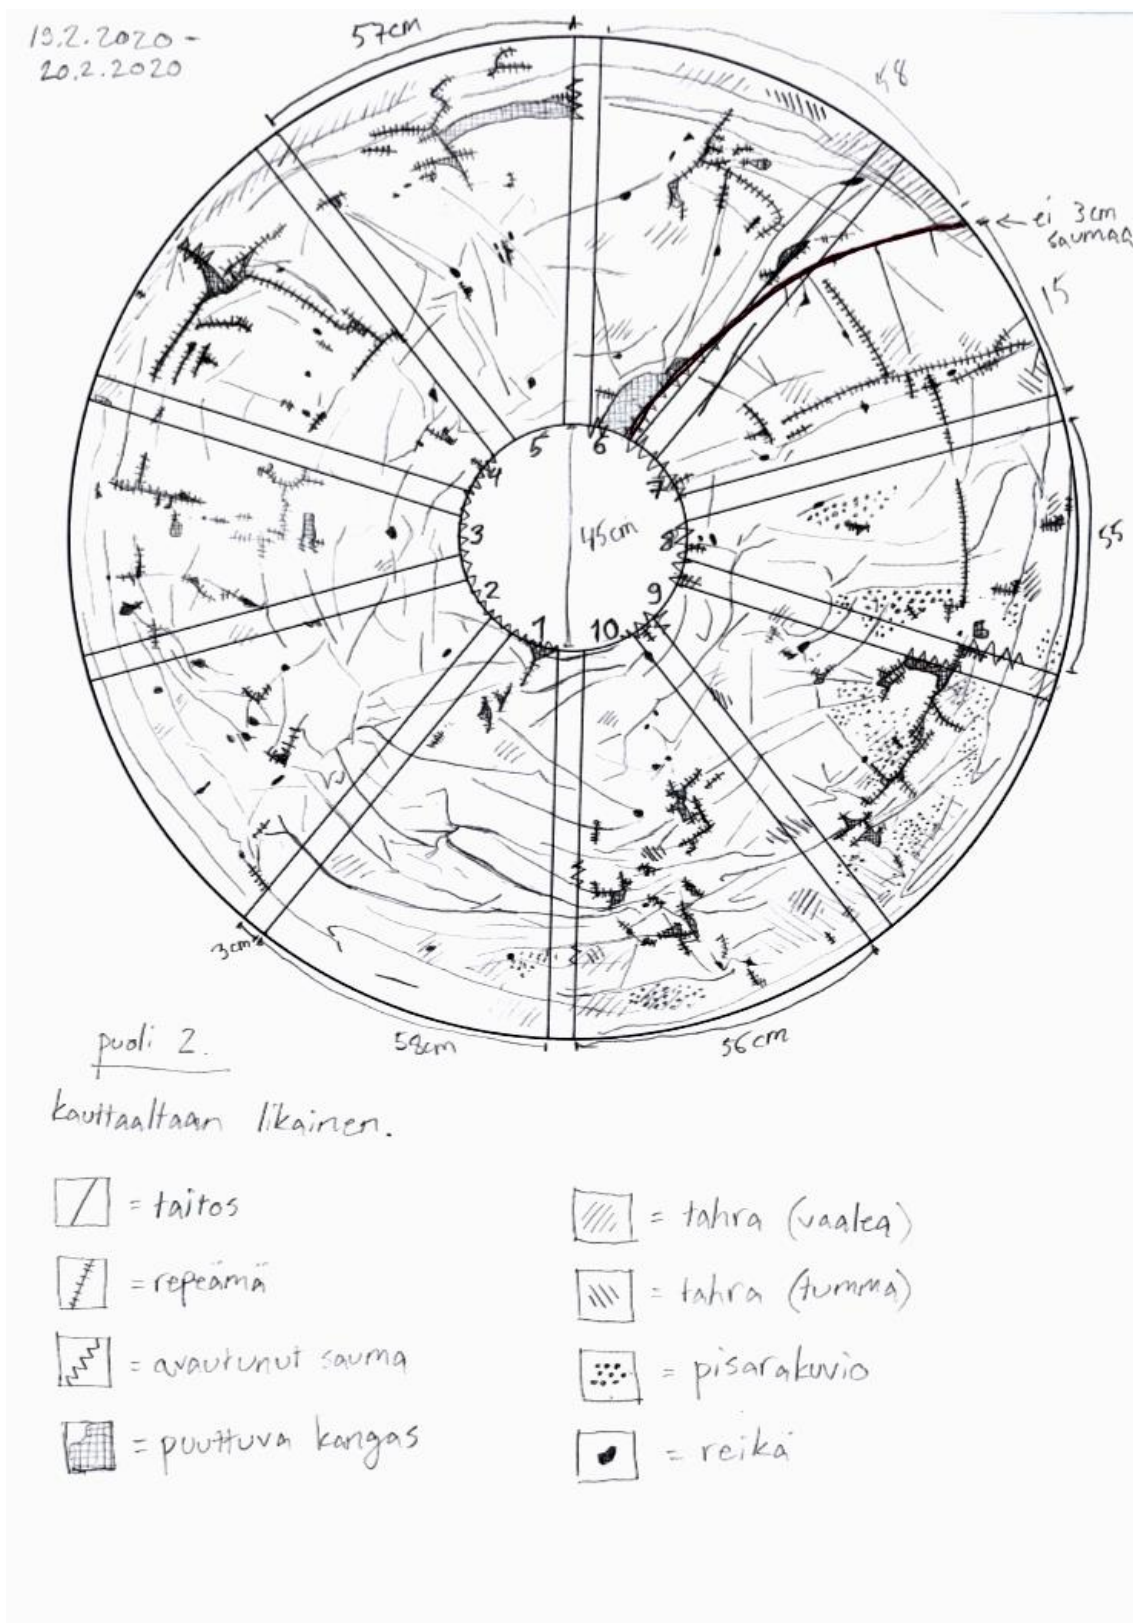 19.2.2020 -
20.2.2020
57cm
58
← ei 3cm
saumaa
15
55
5
6
4
7
3
45cm
8
2
9
1
10
3cm
58cm
56cm
puoli 2.
kauttaaltaan likainen.
= taitos
= repeämä
= avautunut sauma
= puuttuva kangas
= tahra (vaalea)
= tahra (tumma)
= pisarakuvio
= reikä